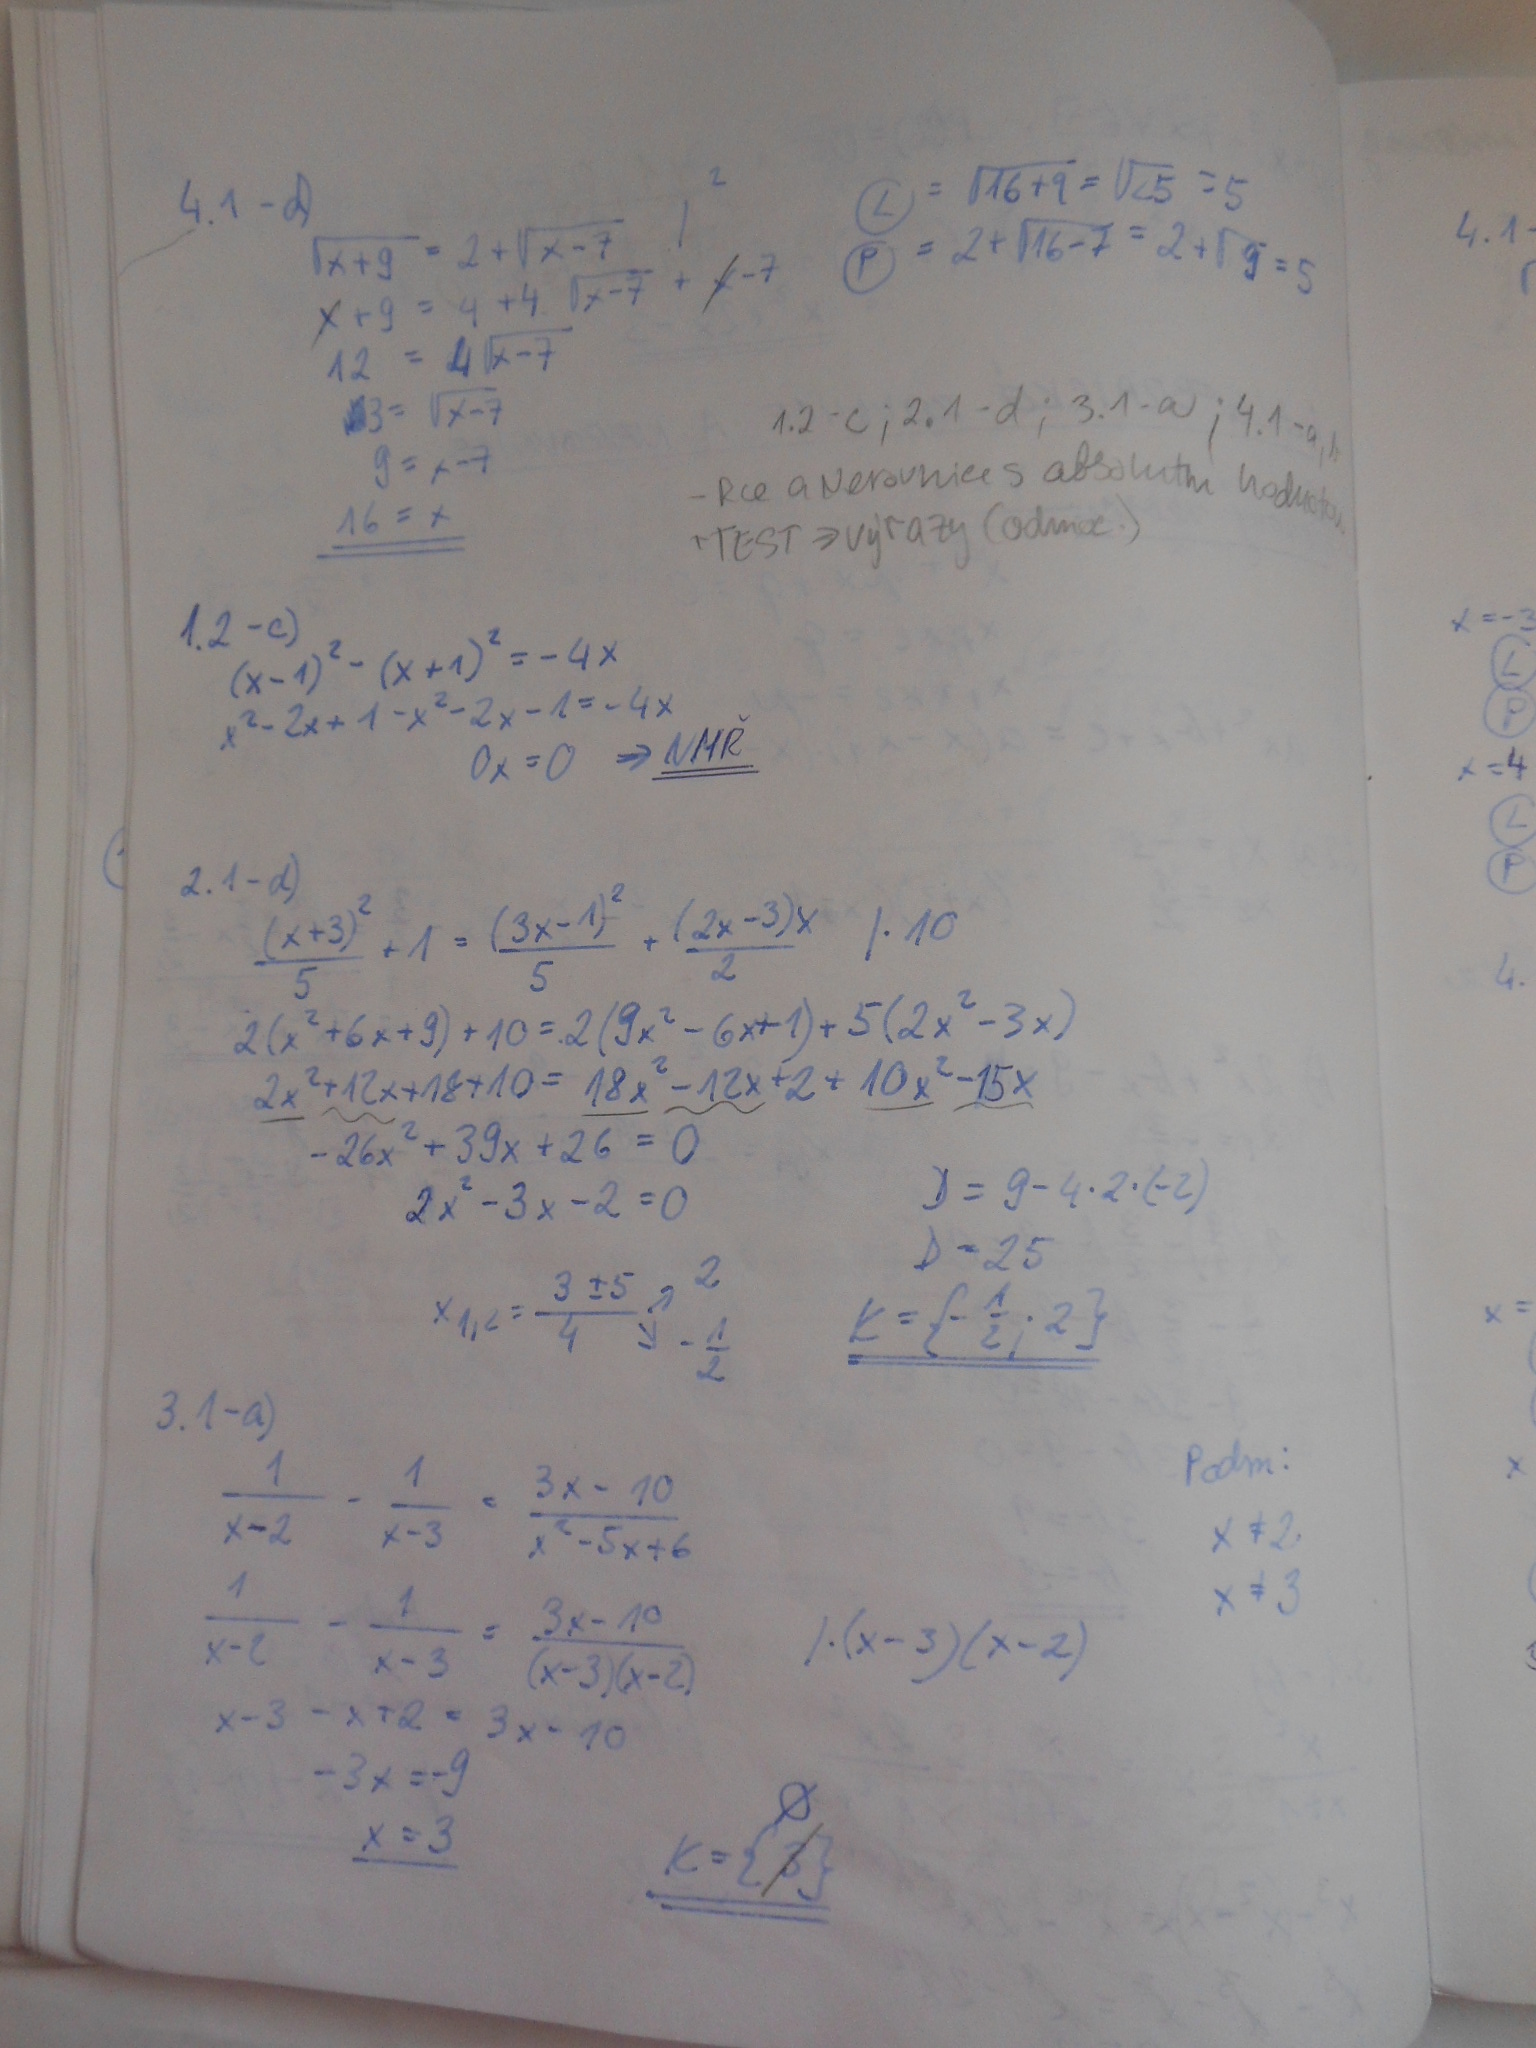 4.1-d)
√(x+9) = 2+√(x-7) /²
x+9 = 4+4 √(x-7) + x-7
12 = 4√(x-7)
3 = √(x-7)
9 = x-7
16 = x
Ⓛ = √(16+9) = √25 = 5
Ⓟ = 2+√(16-7) = 2+√9 = 5
1.2-c; 2.1-d; 3.1-a; 4.1-a,b
- Rce a Nerovnice s absolutní hodnotou
+TEST => výrazy (odmoc.)
1.2-c)
(x-1)² - (x+1)² = -4x
x²-2x+1-x²-2x-1 = -4x
0x = 0 => NMŘ
2.1-d)
(x+3)²/5 + 1 = (3x-1)²/5 + (2x-3)x/2 /·10
2(x²+6x+9)+10 = 2(9x²-6x+1)+5(2x²-3x)
2x²+12x+18+10 = 18x²-12x+2+10x²-15x
-26x²+39x+26 = 0
2x²-3x-2 = 0
D = 9-4·2·(-2)
D = 25
x1,2 = (3±5)/4 ↗ 2 ↘ -1/2
K = {-1/2; 2}
3.1-a)
1/(x-2) - 1/(x-3) = (3x-10)/(x²-5x+6)
Podm:
x ≠ 2
x ≠ 3
1/(x-2) - 1/(x-3) = (3x-10)/((x-3)(x-2)) /·(x-3)(x-2)
x-3-x+2 = 3x-10
-3x = -9
x = 3
∅
K = {3}
4.1-
x = -3
Ⓛ
Ⓟ
x = 4
Ⓛ
Ⓟ
4.
x =
x